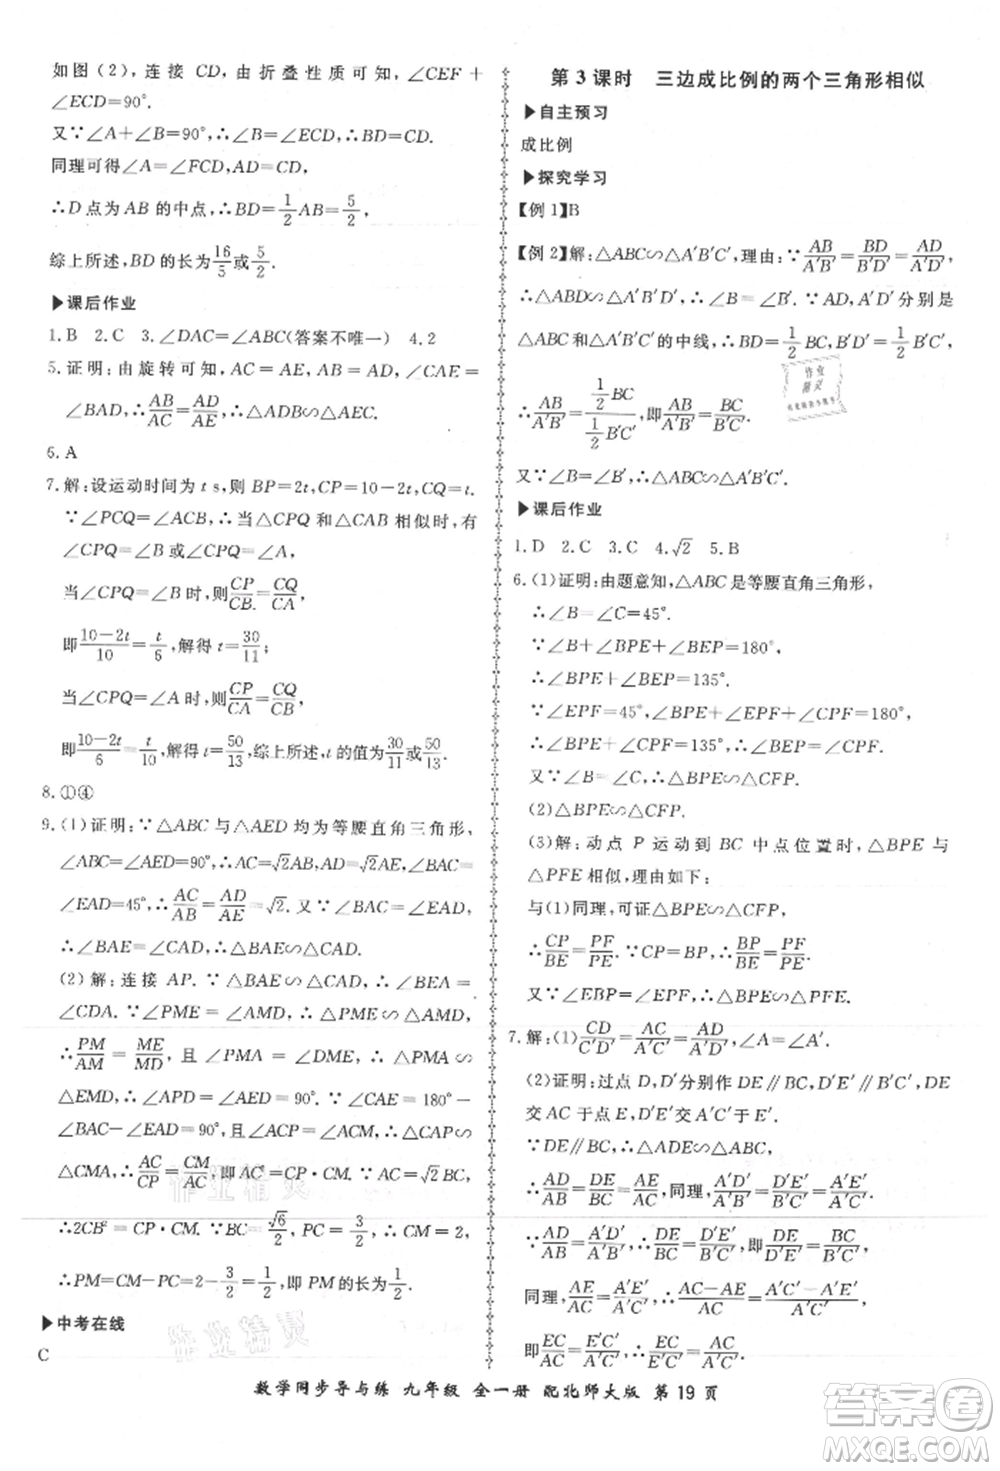 如图(2),连接 CD,由折叠性质可知,∠CEF+
∠ECD=90°.
又∵∠A+∠B=90°,∴∠B=∠ECD,∴BD=CD.
同理可得∠A=∠FCD,AD=CD.
∴D点为AB的中点,∴BD=1/2AB=5/2,
综上所述,BD的长为16/5或5/2.
▶课后作业
1.B 2.C 3.∠DAC=∠ABC(答案不唯一) 4.2
5.证明:由旋转可知,AC=AE,AB=AD,∠CAE=
∠BAD,∴AB/AC=AD/AE,∴△ABD∽△ACE.
6.A
7.解:设运动时间为t s,则BP=2t,CP=10-2t,CQ=t.
∵∠PCQ=∠ACB,∴当△CPQ和△CAB相似时,有
∠CPQ=∠B或∠CPQ=∠A.
当∠CPQ=∠B时,△CPQ∽△CBA,则CP/CB.=CQ/CA,
即10-2t/10=t/6,解得t=30/11;
当∠CPQ=∠A时,△CPQ∽△CAB,则CP/CA=CQ/CB,
即10-2t/6=t/10,解得t=50/13,综上所述,t的值为30/11或50/13.
8.①④
9.(1)证明:∵△ABC与△AED均为等腰直角三角形,
∠ABC=∠AED=90°,∴AC=√2AB,AD=√2AE,∠BAC=
∠EAD=45°,∴AC/AB=AD/AE=√2.又∵∠BAC=∠EAD,
∴∠BAE=∠CAD,∴△BAE∽△CAD.
(2)解:连接AP.∵△BAE∽△CAD,∴∠BEA=
∠CDA.∵∠PME=∠AMD,∴△PME∽△AMD,
∴PM/AM=ME/MD.∵∠PMA=∠EMD,∴△PMA∽△
EMD,∴∠APD=∠AED=90°.∵∠CAE=180°-
∠BAC-∠EAD=90°,且∠ACP=∠MCA,∴△CAP∽
△CMA,∴AC/CP=CM/AC,∴AC²=CP·CM.∵AC=√2BC,
∴2CB²=CP·CM.∵BC=√6/2,PC=3/2,∴CM=2,
∴PM=CM-PC=2-3/2=1/2,即PM的长为1/2.
▶中考在线
C
第3课时 三边成比例的两个三角形相似
▶自主预习
成比例
▶探究学习
【例1】B
【例2】解:△ABC∽△A′B′C′,理由:∵AB/A′B′=BD/B′D′=AD/A′D′,
∴△ABD∽△A′B′D′,∴∠B=∠B′.∵AD、A′D′分别是
△ABC和△A′B′C′的中线,∴BD=1/2BC,B′D′=1/2B′C′,
∴AB/A′B′=1/2BC/1/2B′C′,即AB/A′B′=BC/B′C′.
又∵∠B=∠B′,∴△ABC∽△A′B′C′.
▶课后作业
1.D 2.C 3.C 4.√2 5.B
6.(1)证明:由题意知,△ABC是等腰直角三角形,
∴∠B=∠C=45°.
∵∠B+∠BPE+∠BEP=180°,
∴∠BPE+∠BEP=135°.
∵∠EPF=45°,∠BPE+∠EPF+∠CPF=180°,
∴∠BPE+∠CPF=135°,∴∠BEP=∠CPF.
又∵∠B=∠C,∴△BPE∽△CFP.
(2)△BPE∽△CFP.
(3)解:动点P运动到BC中点位置时,△BPE与
△PFE相似,理由如下:
与(1)同理,可证△BPE∽△CFP,
∴CP/BE=PF/PE.∵CP=BP,∴BP/BE=PF/PE.
又∵∠EBP=∠EPF,∴△BPE∽△PFE.
7.解:(1)CD/C′D′=AC/A′C′=AD/A′D′,∠A=∠A′.
(2)证明:过点D,D′分别作DE∥BC,D′E′∥B′C′,DE
交AC于点E,D′E′交A′C′于点E′.
∵DE∥BC,∴△ADE∽△ABC,
∴AD/AB=DE/BC=AE/AC.同理,A′D′/A′B′=D′E′/B′C′=A′E′/A′C′,
∵AD/AB=A′D′/A′B′,∴DE/BC=D′E′/B′C′,即DE/D′E′=BC/B′C′,
同理,AE/A′E′=AC/A′C′,∴AC-AE/A′C′-A′E′=AC/A′C′,
即EC/E′C′=AC/A′C′,∴EC/E′C′=
数学同步导与练 九年级 全一册 配北师大版 第19页
作业
精灵
作业精灵
作业精灵
答案圈
MXQE.COM